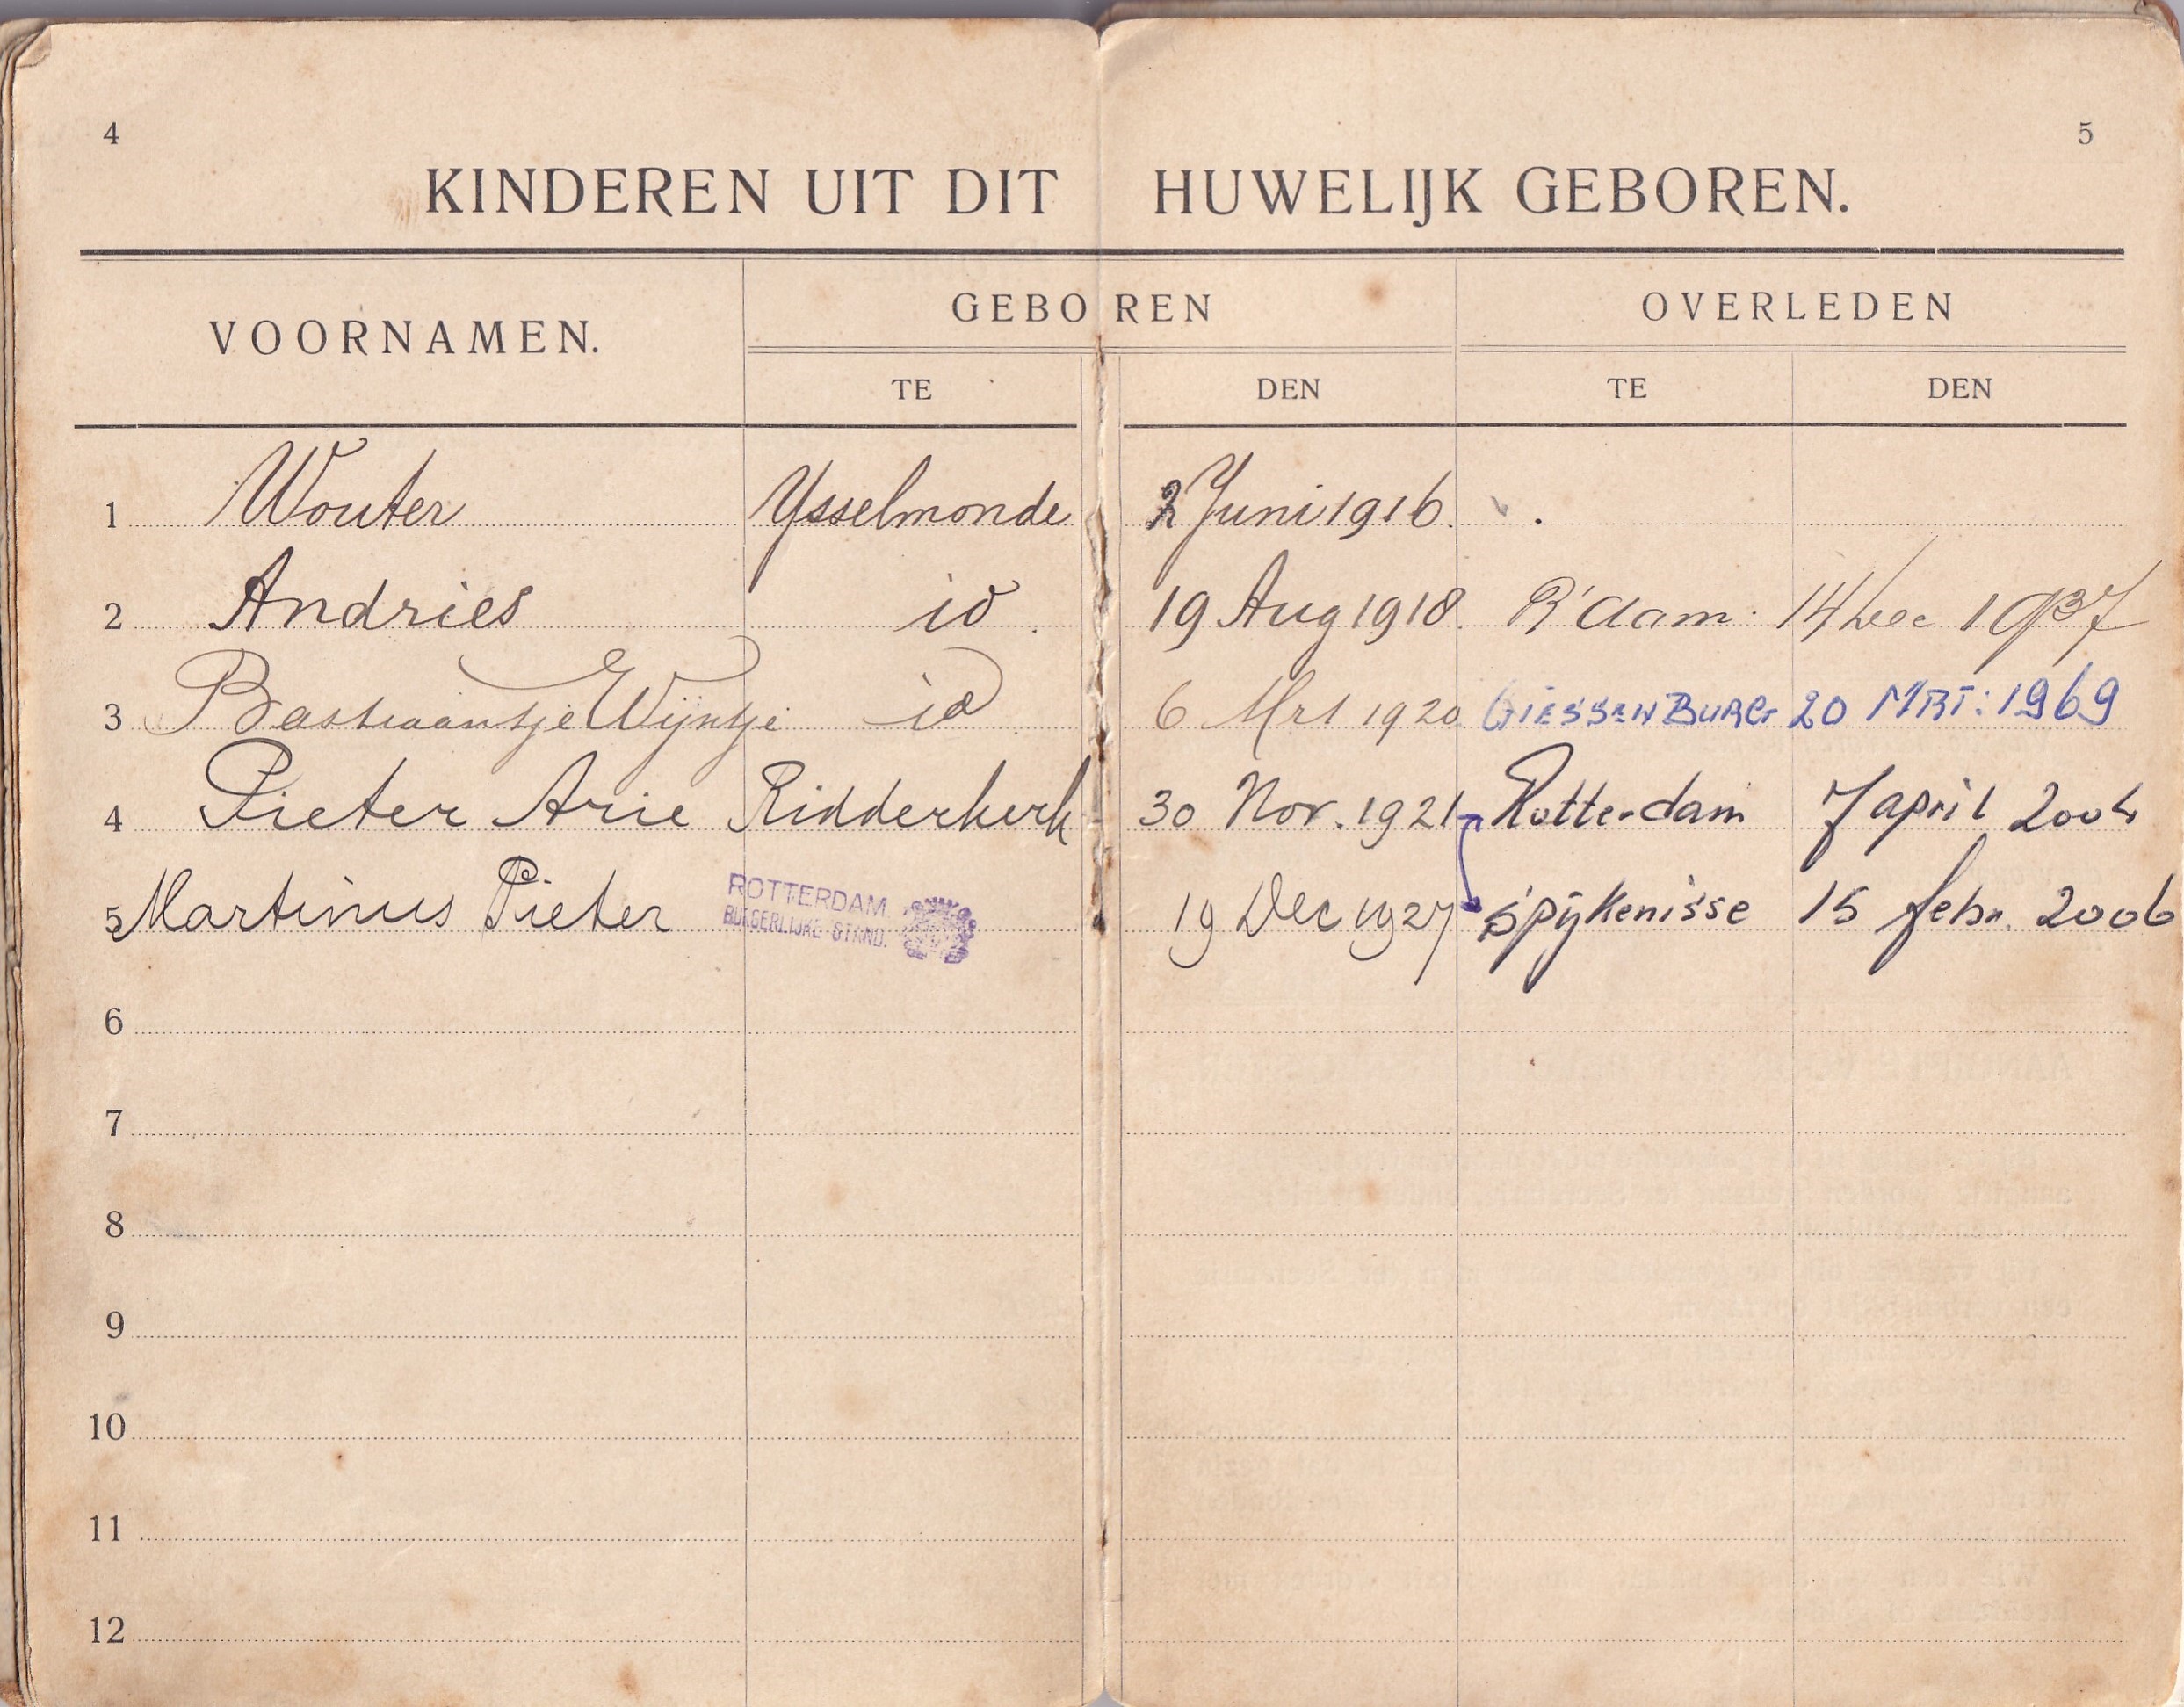 4
5
KINDEREN UIT DIT HUWELIJK GEBOREN.
VOORNAMEN.
GEBOREN
OVERLEDEN
TE
DEN
TE
DEN
1 Wouter Ysselmonde 2 Juni 1916.
2 Andries id. 19 Aug 1918. R'dam. 14 Dec 1937
3 Bastiaantje Wijntje id 6 Mrt 1920 GIESSENBURG 20 MRT: 1969
4 Pieter Arie Ridderkerk 30 Nov. 1921 Rotterdam 7 april 2004
5 Martinus Pieter ROTTERDAM 19 Dec 1927 Spijkenisse 15 febr. 2006
BURGERLIJKE STAND.
6
7
8
9
10
11
12